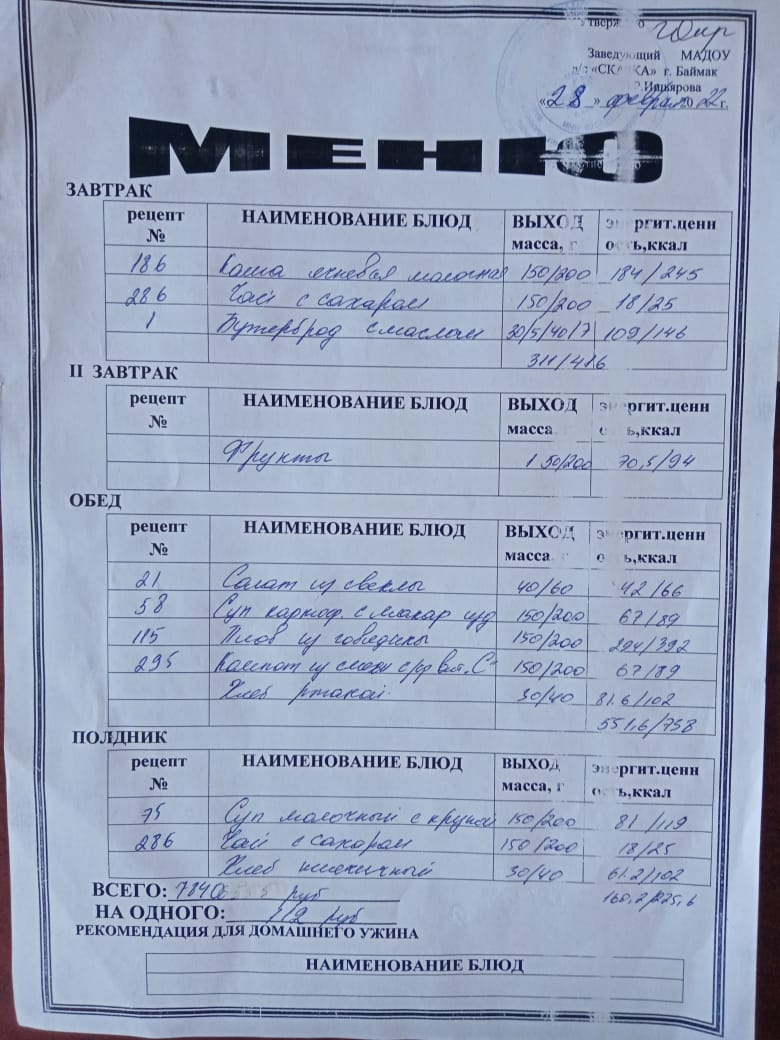 Заведующий МАДОУ
г. Баймак
«28» феврал 2022 г.
МЕНЮ
ЗАВТРАК
рецепт № НАИМЕНОВАНИЕ БЛЮД ВЫХОД масса, г энергит.ценн ость,ккал
186 Каша ячневая молочная 150/200 184/245
286 Чай с сахаром 150/200 18/25
1 Бутерброд с маслом 30/5/40/7 109/146
311/416
II ЗАВТРАК
рецепт № НАИМЕНОВАНИЕ БЛЮД ВЫХОД масса энергит.ценн ость,ккал
Фрукты 150/200 70,5/94
ОБЕД
рецепт № НАИМЕНОВАНИЕ БЛЮД ВЫХОД масса г энергит.ценн ость,ккал
21 Салат из свеклы 40/60 42/66
58 Суп картоф. с макар изд 150/200 67/89
115 Плов из говядины 150/200 294/392
295 Компот из смеси с/ф вит. С 150/200 67/89
Хлеб ржаной 30/40 81.6/102
551,6/738
ПОЛДНИК
рецепт № НАИМЕНОВАНИЕ БЛЮД ВЫХОД масса, г энергит.ценн ость,ккал
75 Суп молочный с крупой 150/200 81/119
286 Чай с сахаром 150/200 18/25
Хлеб пшеничный 30/40 61.2/102
160,2/225,6
ВСЕГО: 7840 руб
НА ОДНОГО: 112 руб
РЕКОМЕНДАЦИЯ ДЛЯ ДОМАШНЕГО УЖИНА
НАИМЕНОВАНИЕ БЛЮД